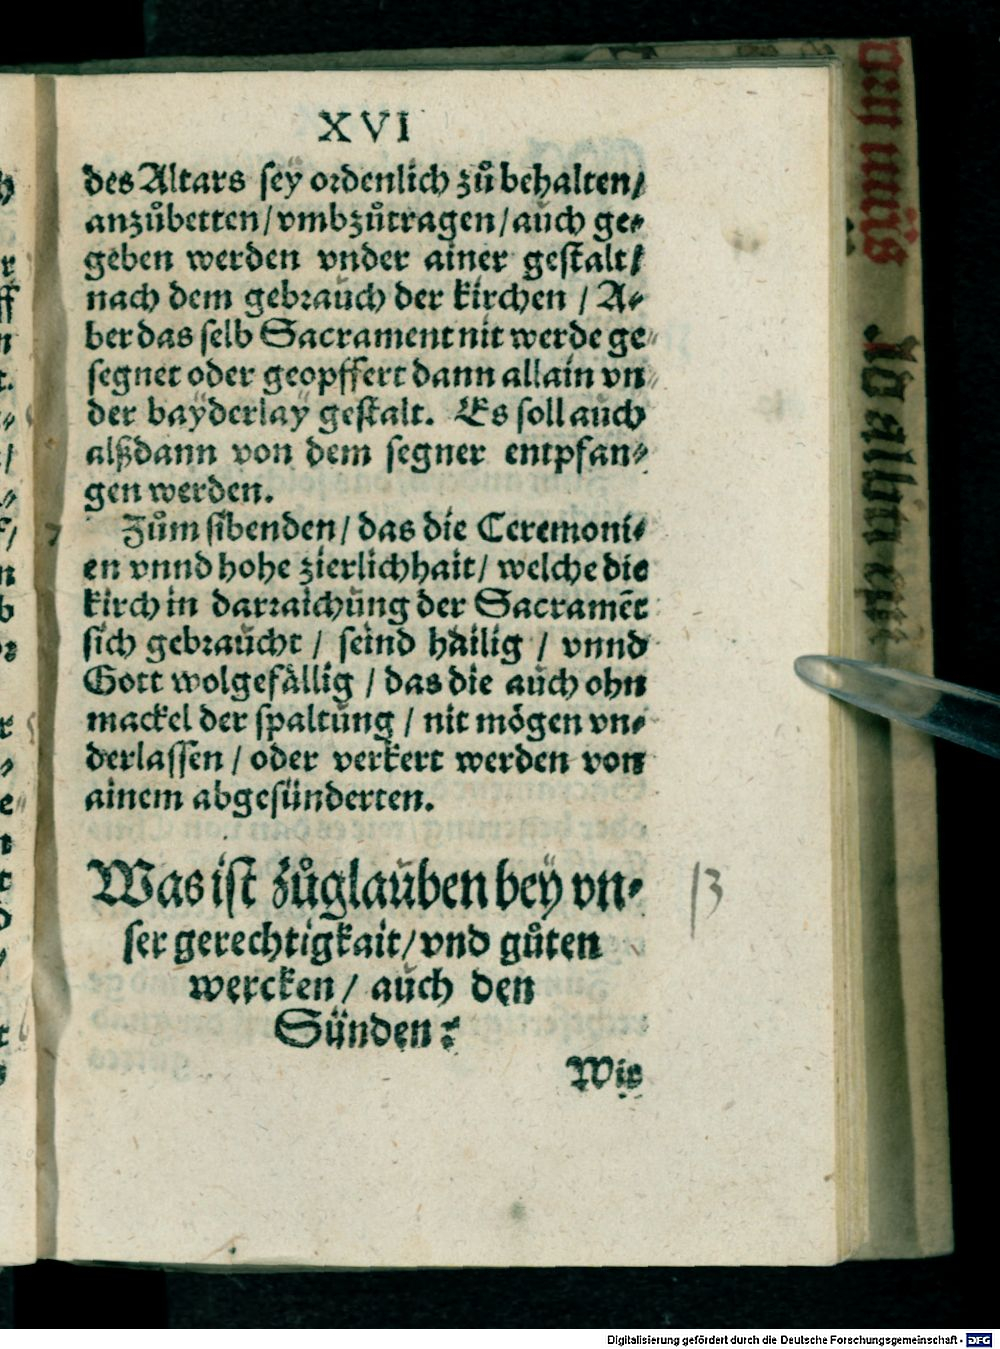 XVI
des Altars seÿ ordenlich zů behalten/
anzůbetten/ vmbzůtragen/ aůch ge⸗
geben werden vnder ainer gestalt/
nach dem gebraůch der kirchen / A⸗
ber das selb Sacrament nit werde ge⸗
segnet oder geopffert dann allain vn⸗
der baÿderlaÿ gestalt. Es soll aůch
alßdann von dem segner entpfan⸗
gen werden.
7 Zům sibenden/ das die Ceremoni⸗
en vnnd hohe zierlichhait/ welche die
kirch in darraichůng der Sacramēt
sich gebraůcht / seind håilig / vnnd
Gott wolgefållig / das die aůch ohn
mackel der spaltůng / nit mögen vn⸗
derlassen / oder verkert werden von
ainem abgesünderten.
Was ist zůglaůben beÿ vn⸗
ser gerechtigkait/ vnd gůten
wercken / aůch den
Sünden?
13
Wie
Digitalisierung gefördert durch die Deutsche Forschungsgemeinschaft - DFG